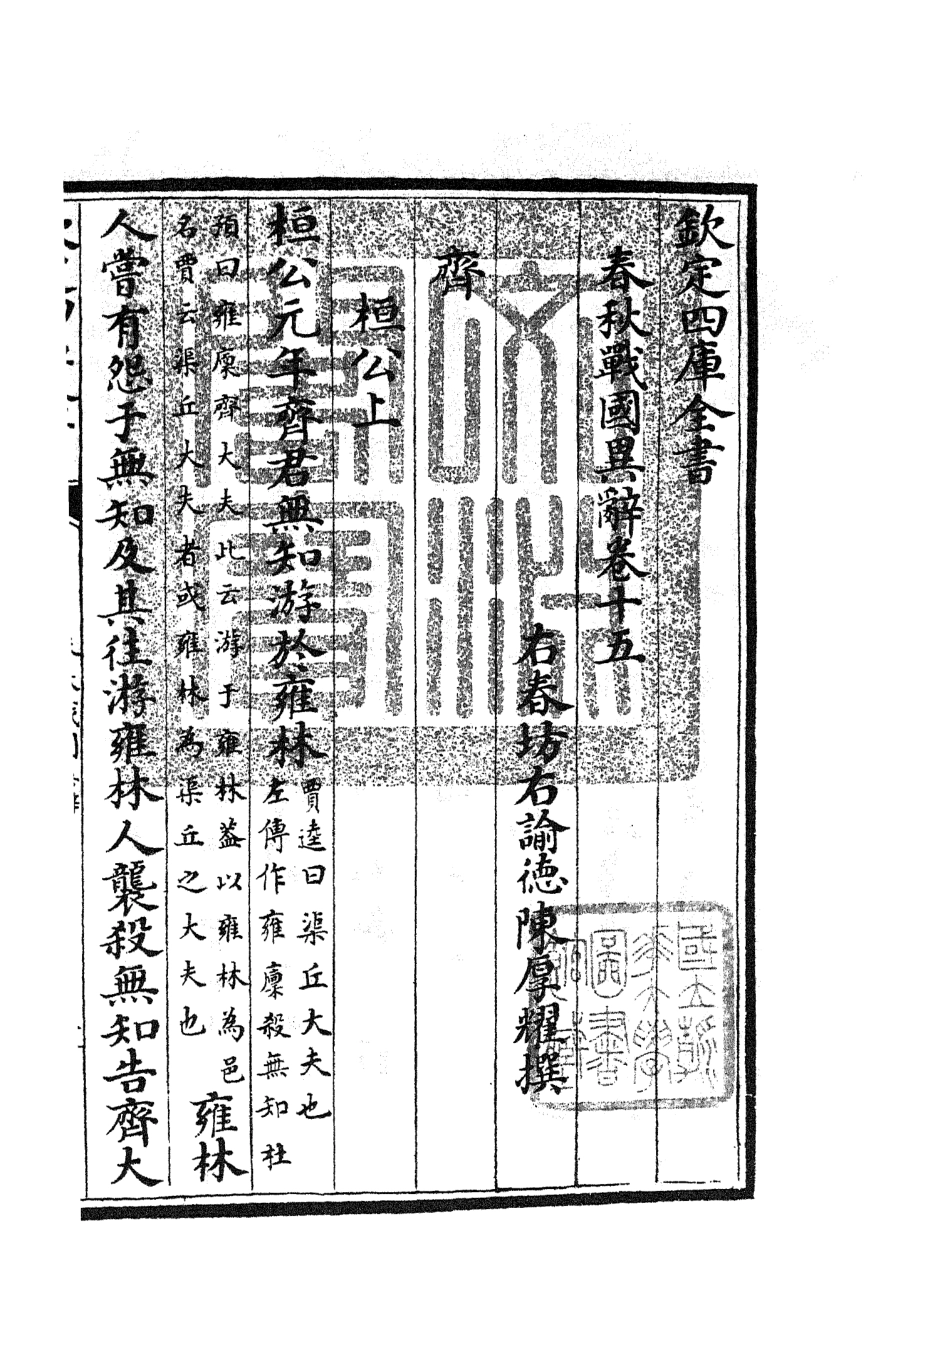 欽定四庫全書
春秋戰國異辭卷十五
右春坊右諭徳陳厚耀撰
齊
桓公上
桓公元年齊君無知游於雍林賈逵曰渠丘大夫也
左傳作雍廩殺無知杜
預曰雍廩齊大夫此云游于雍林葢以雍林為邑
名賈云渠丘大夫者或雍林為渠丘之大夫也雍林
人嘗有怨于無知及其往游雍林人襲殺無知告齊大